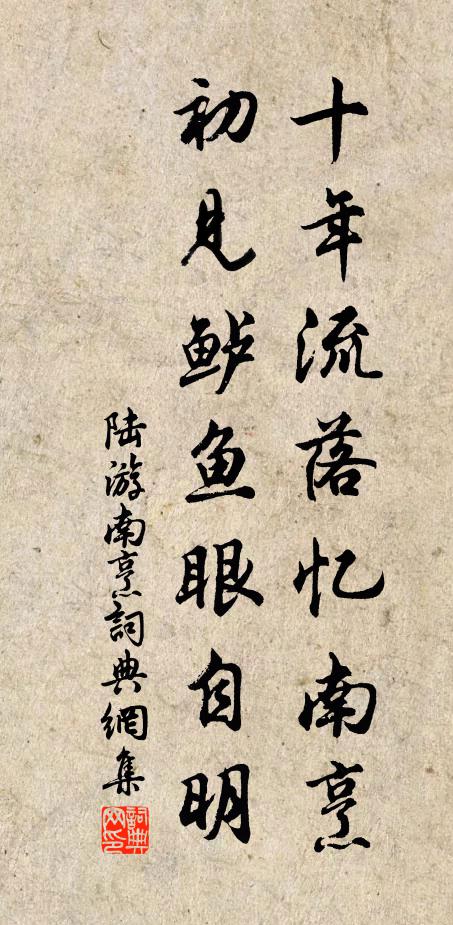 十年流落忆南烹
初见鲈鱼眼自明
陆游南烹詞典網集
詞典網印